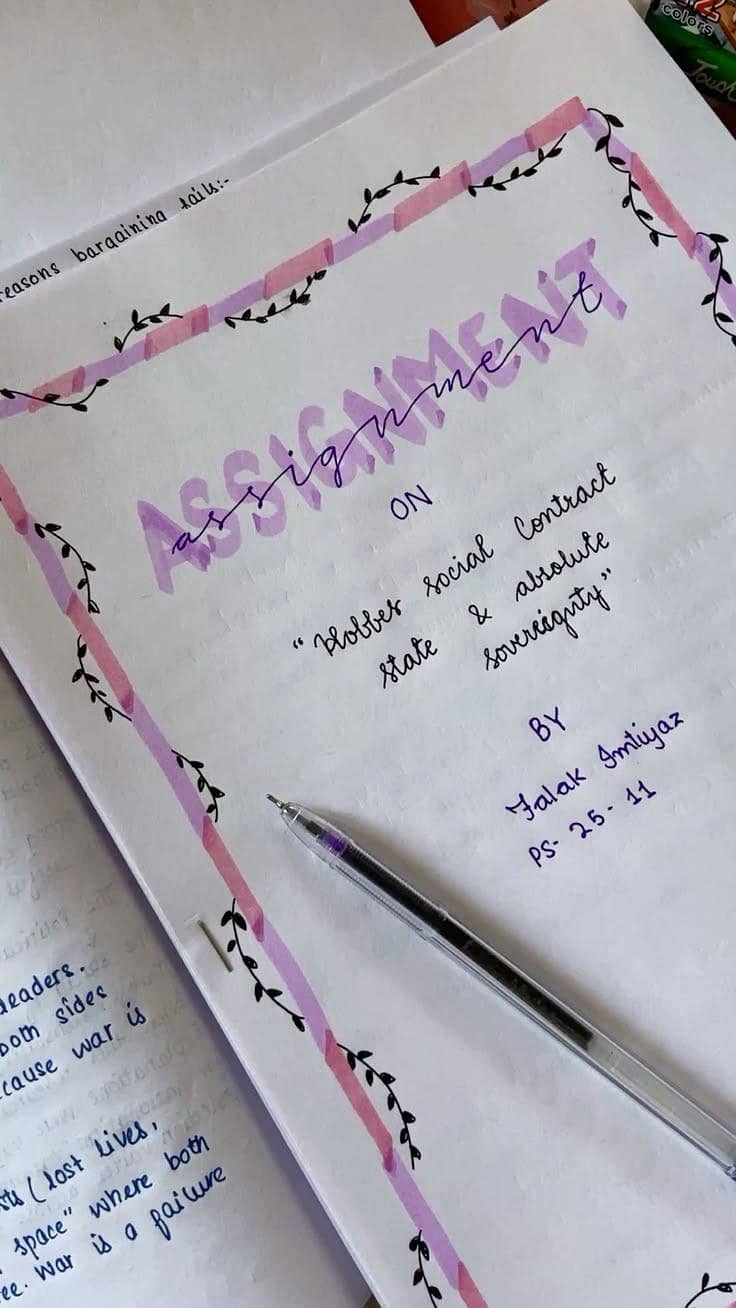 colors
Touch
reasons bargaining fails:-
ASSIGNMENT
assignment
ON
"Hobbes social Contract
state & absolute
sovereignty"
BY
Falak Imtiyaz
PS-25-11
leaders.
both sides
cause war is
(lost lives,
space" where both
war is a failure